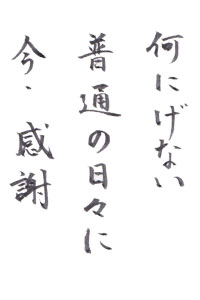 何にげない
普通の日々に
今・感謝